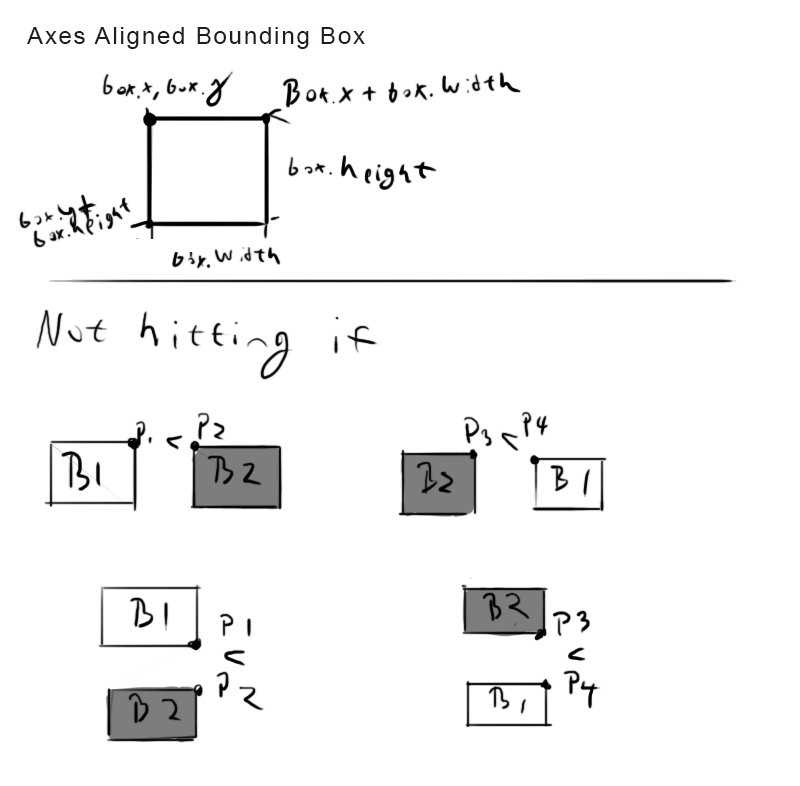 Axes Aligned Bounding Box
box.x, box.y
Box.x + box.width
box.height
box.y+
box.height
box.width
Not hitting if
P1 < P2
B1 B2
P3 < P4
B2 B1
B1
P1
<
P2
B2
B2
P3
<
P4
B1